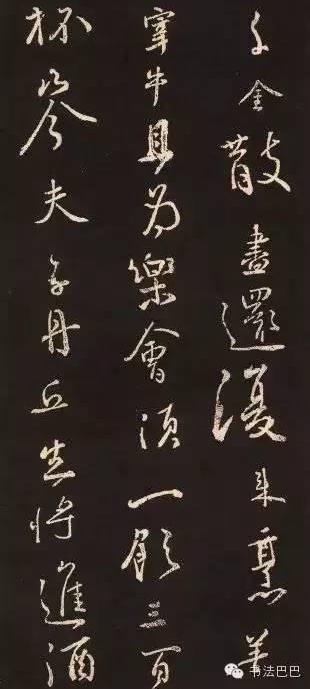 千金散盡還復来烹羊
宰牛且为樂會須一飲三百
杯岑夫子丹丘生将進酒
书法巴巴